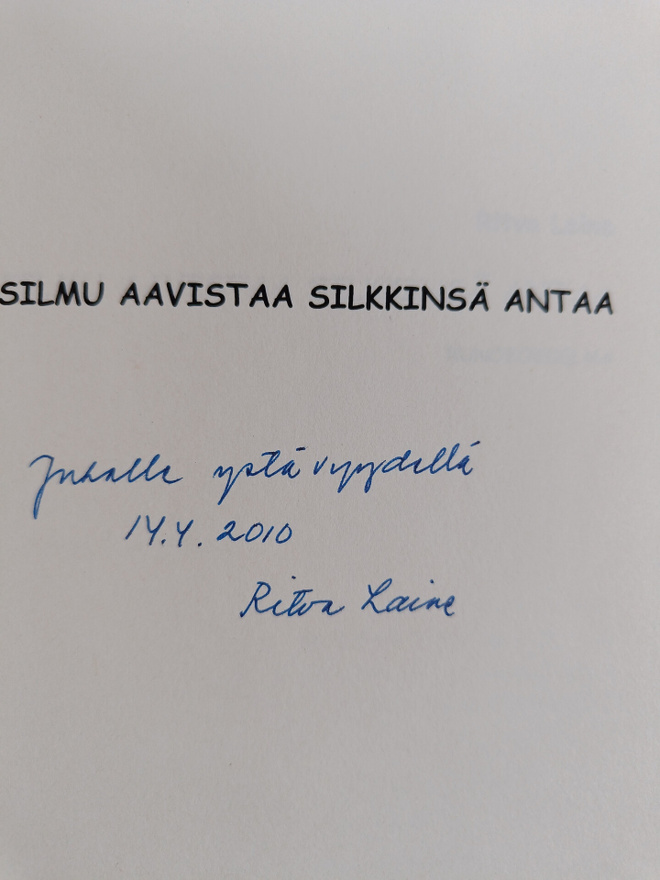 SILMU AAVISTAA SILKKINSÄ ANTAA
Juhalle ystävyydellä
14.4.2010
Ritva Laine